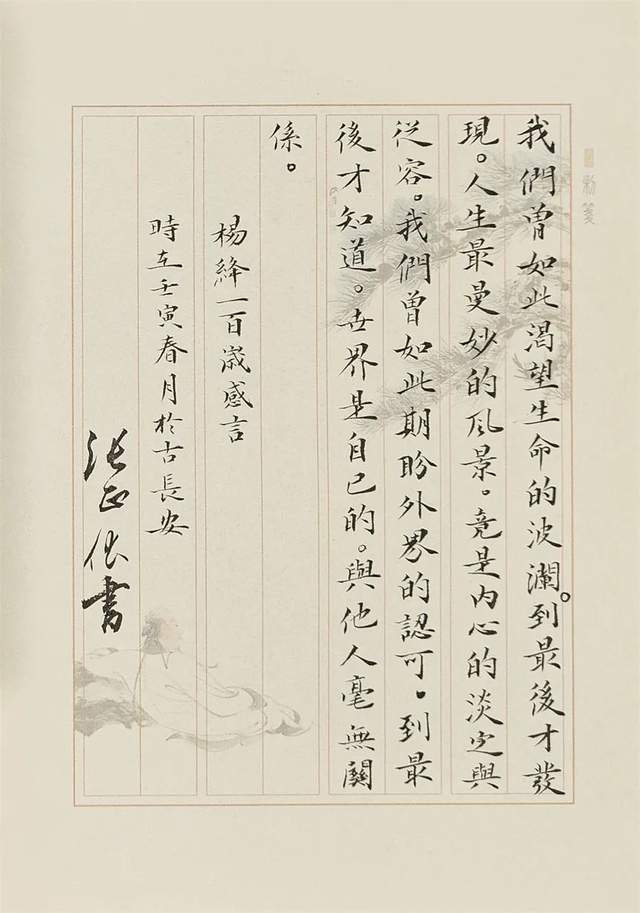 我們曾如此渴望生命的波瀾。到最後才發
現。人生最曼妙的风景。竟是内心的淡定與
從容。我們曾如此期盼外界的認可。到最
後才知道。世界是自己的。與他人毫無關
係。
楊絳一百歲感言
時在壬寅春月於古長安
張正
書